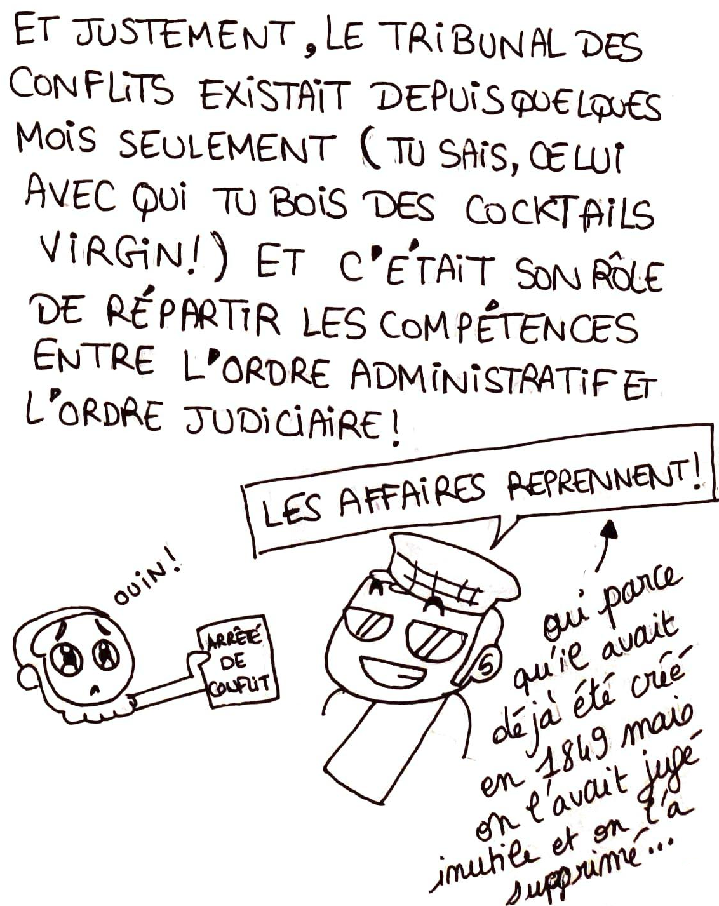 ET JUSTEMENT, LE TRIBUNAL DES
CONFLITS EXISTAIT DEPUIS QUELQUES
MOIS SEULEMENT (TU SAIS, CELUI
AVEC QUI TU BOIS DES COCKTAILS
VIRGIN!) ET C'ÉTAIT SON RÔLE
DE RÉPARTIR LES COMPÉTENCES
ENTRE L'ORDRE ADMINISTRATIF ET
L'ORDRE JUDICIAIRE!
LES AFFAIRES REPRENNENT!
OUIN!
ARRÊTÉ
DE
CONFLIT
oui parce
qu'il avait
déjà été créé
en 1849 mais
on l'avait jugé
inutile et on l'a
supprimé...